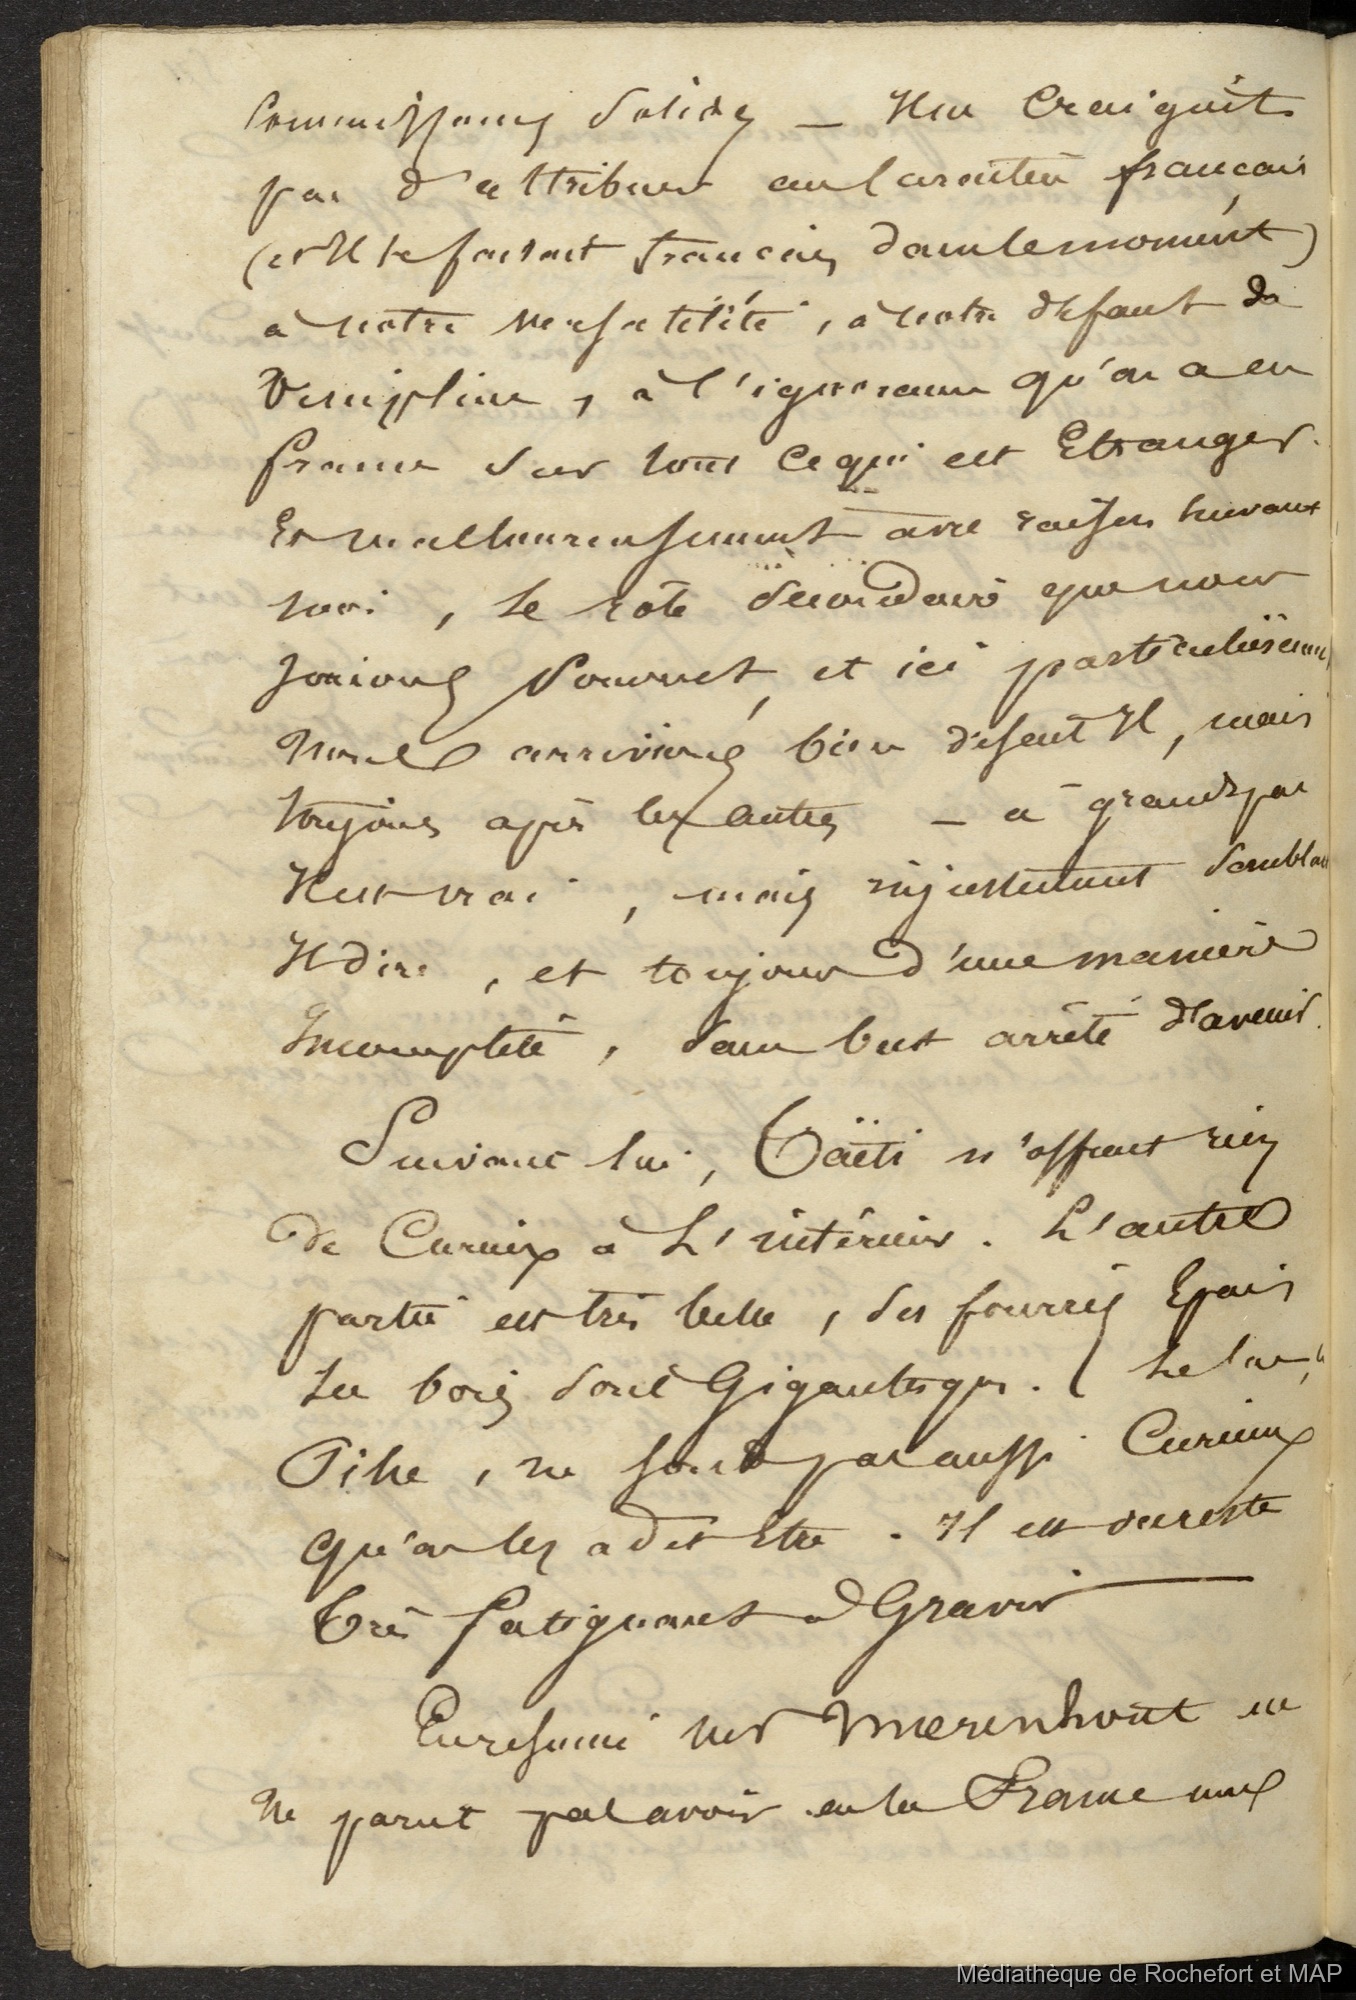 connaissances solides — Il ne craignit
pas d'attribuer au caractère français
(et Il se faisait français dans le moment)
à notre versatilité, à notre défaut de
Discipline, à l'ignorance qu'on a en
france sur tout ce qui est Etranger.
Et malheureusement avec raison suivant
moi, le rôle secondaire que nous
jouions souvent, et ici particulièrement,
Nous arrivions bien disait Il, mais
toujours après les autres — à grands pas
Il est vrai, mais injustement semblait
Il dire, et toujours d'une manière
Incomplète, sans but arrêté d'avenir.
Suivant lui, Taïti n'offrait rien
de Curieux à L'intérieur. L'autre
partie est très belle, des fourrés Epais
Les bois sont Gigantesques. Le lac,
Pihe, ne sont pas aussi Curieux
qu'on les a dit Etre. Il est du reste
très fatiguant à Gravir
En résumé Mr Merenhout
Ne parut pas avoir en la France une
Médiathèque de Rochefort et MAP